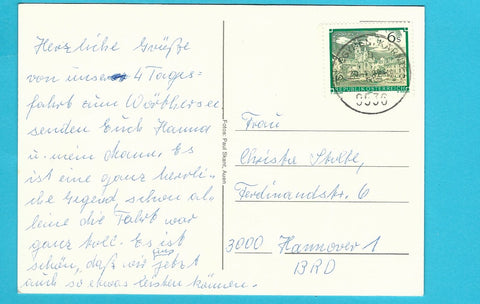 Herzliche Grüße
von unser 4 Tages=
fahrt zum Wörthersee
senden Euch Hanna
u. mein Mann. Es
ist eine ganz herrli=
che Gegend, schon al=
leine die Fahrt war
ganz toll. Es ist
schön, daß wir uns jetzt
auch so etwas leisten können.
Fotos: Paul Stähr,
6 S
REPUBLIK ÖSTERREICH
9536
Frau
Christa
Ferdinandstr. 6
3000 Hannover 1
BRD